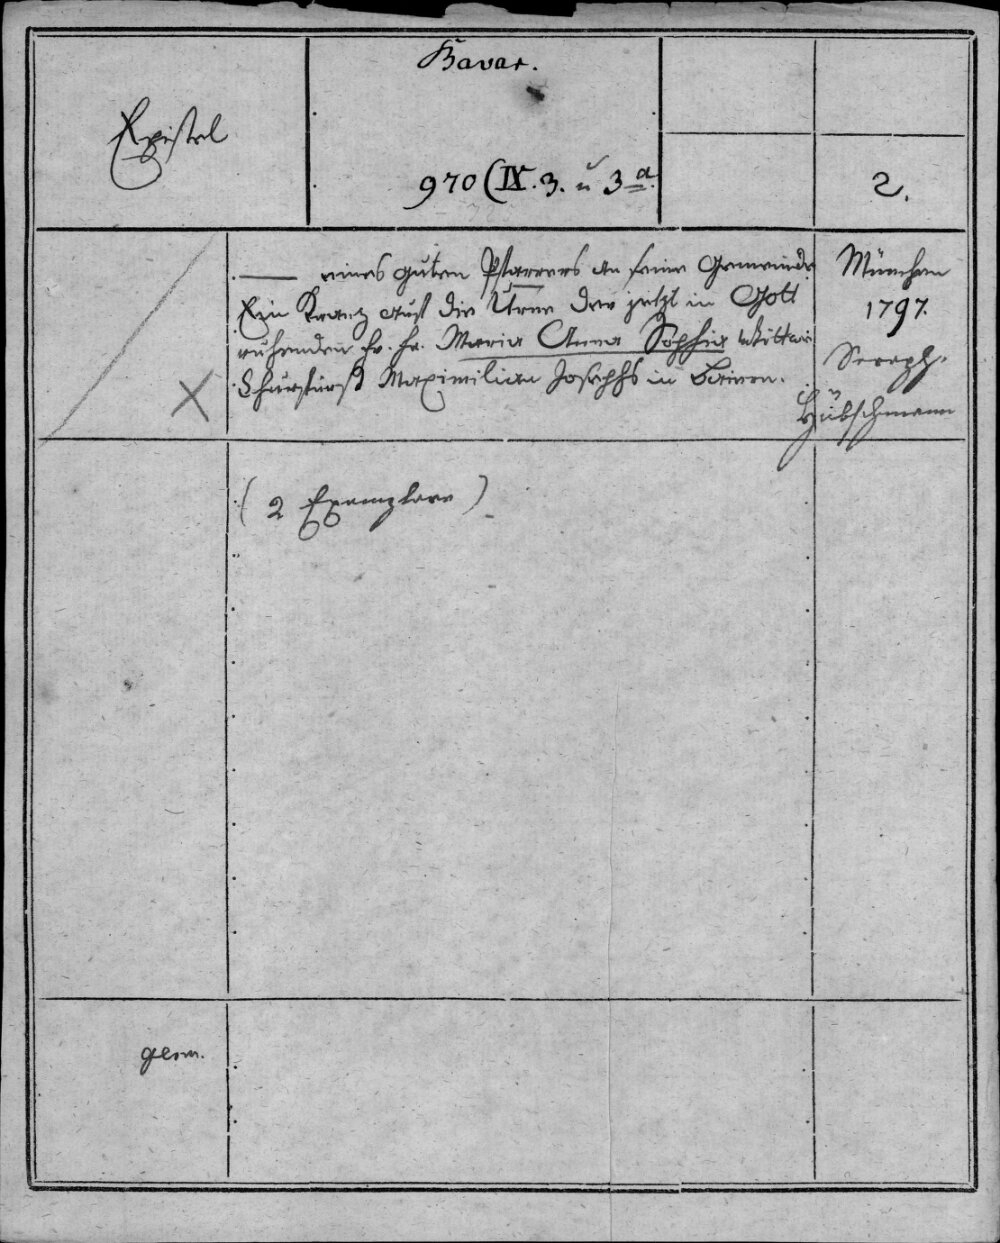 Bavar.
Epistel
970 (IX. 3. u 3 a.
2.
— eines guten Pfarrers an seine Gemeinde
Ein Kranz auf die Urne der jetzt in Gott
ruhenden Fr. Fr. Maria Anna Sophia Wittwe
Churfürst Maximilian Josephs in Baiern.
München
1797.
Seraph.
Hübschmann
(2 Exemplare)
germ.